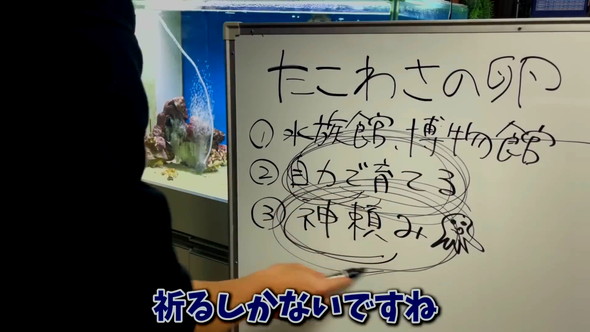 たこわさの卵
① 水族館、博物館
② 自力で育てる
③ 神頼み
祈るしかないですね